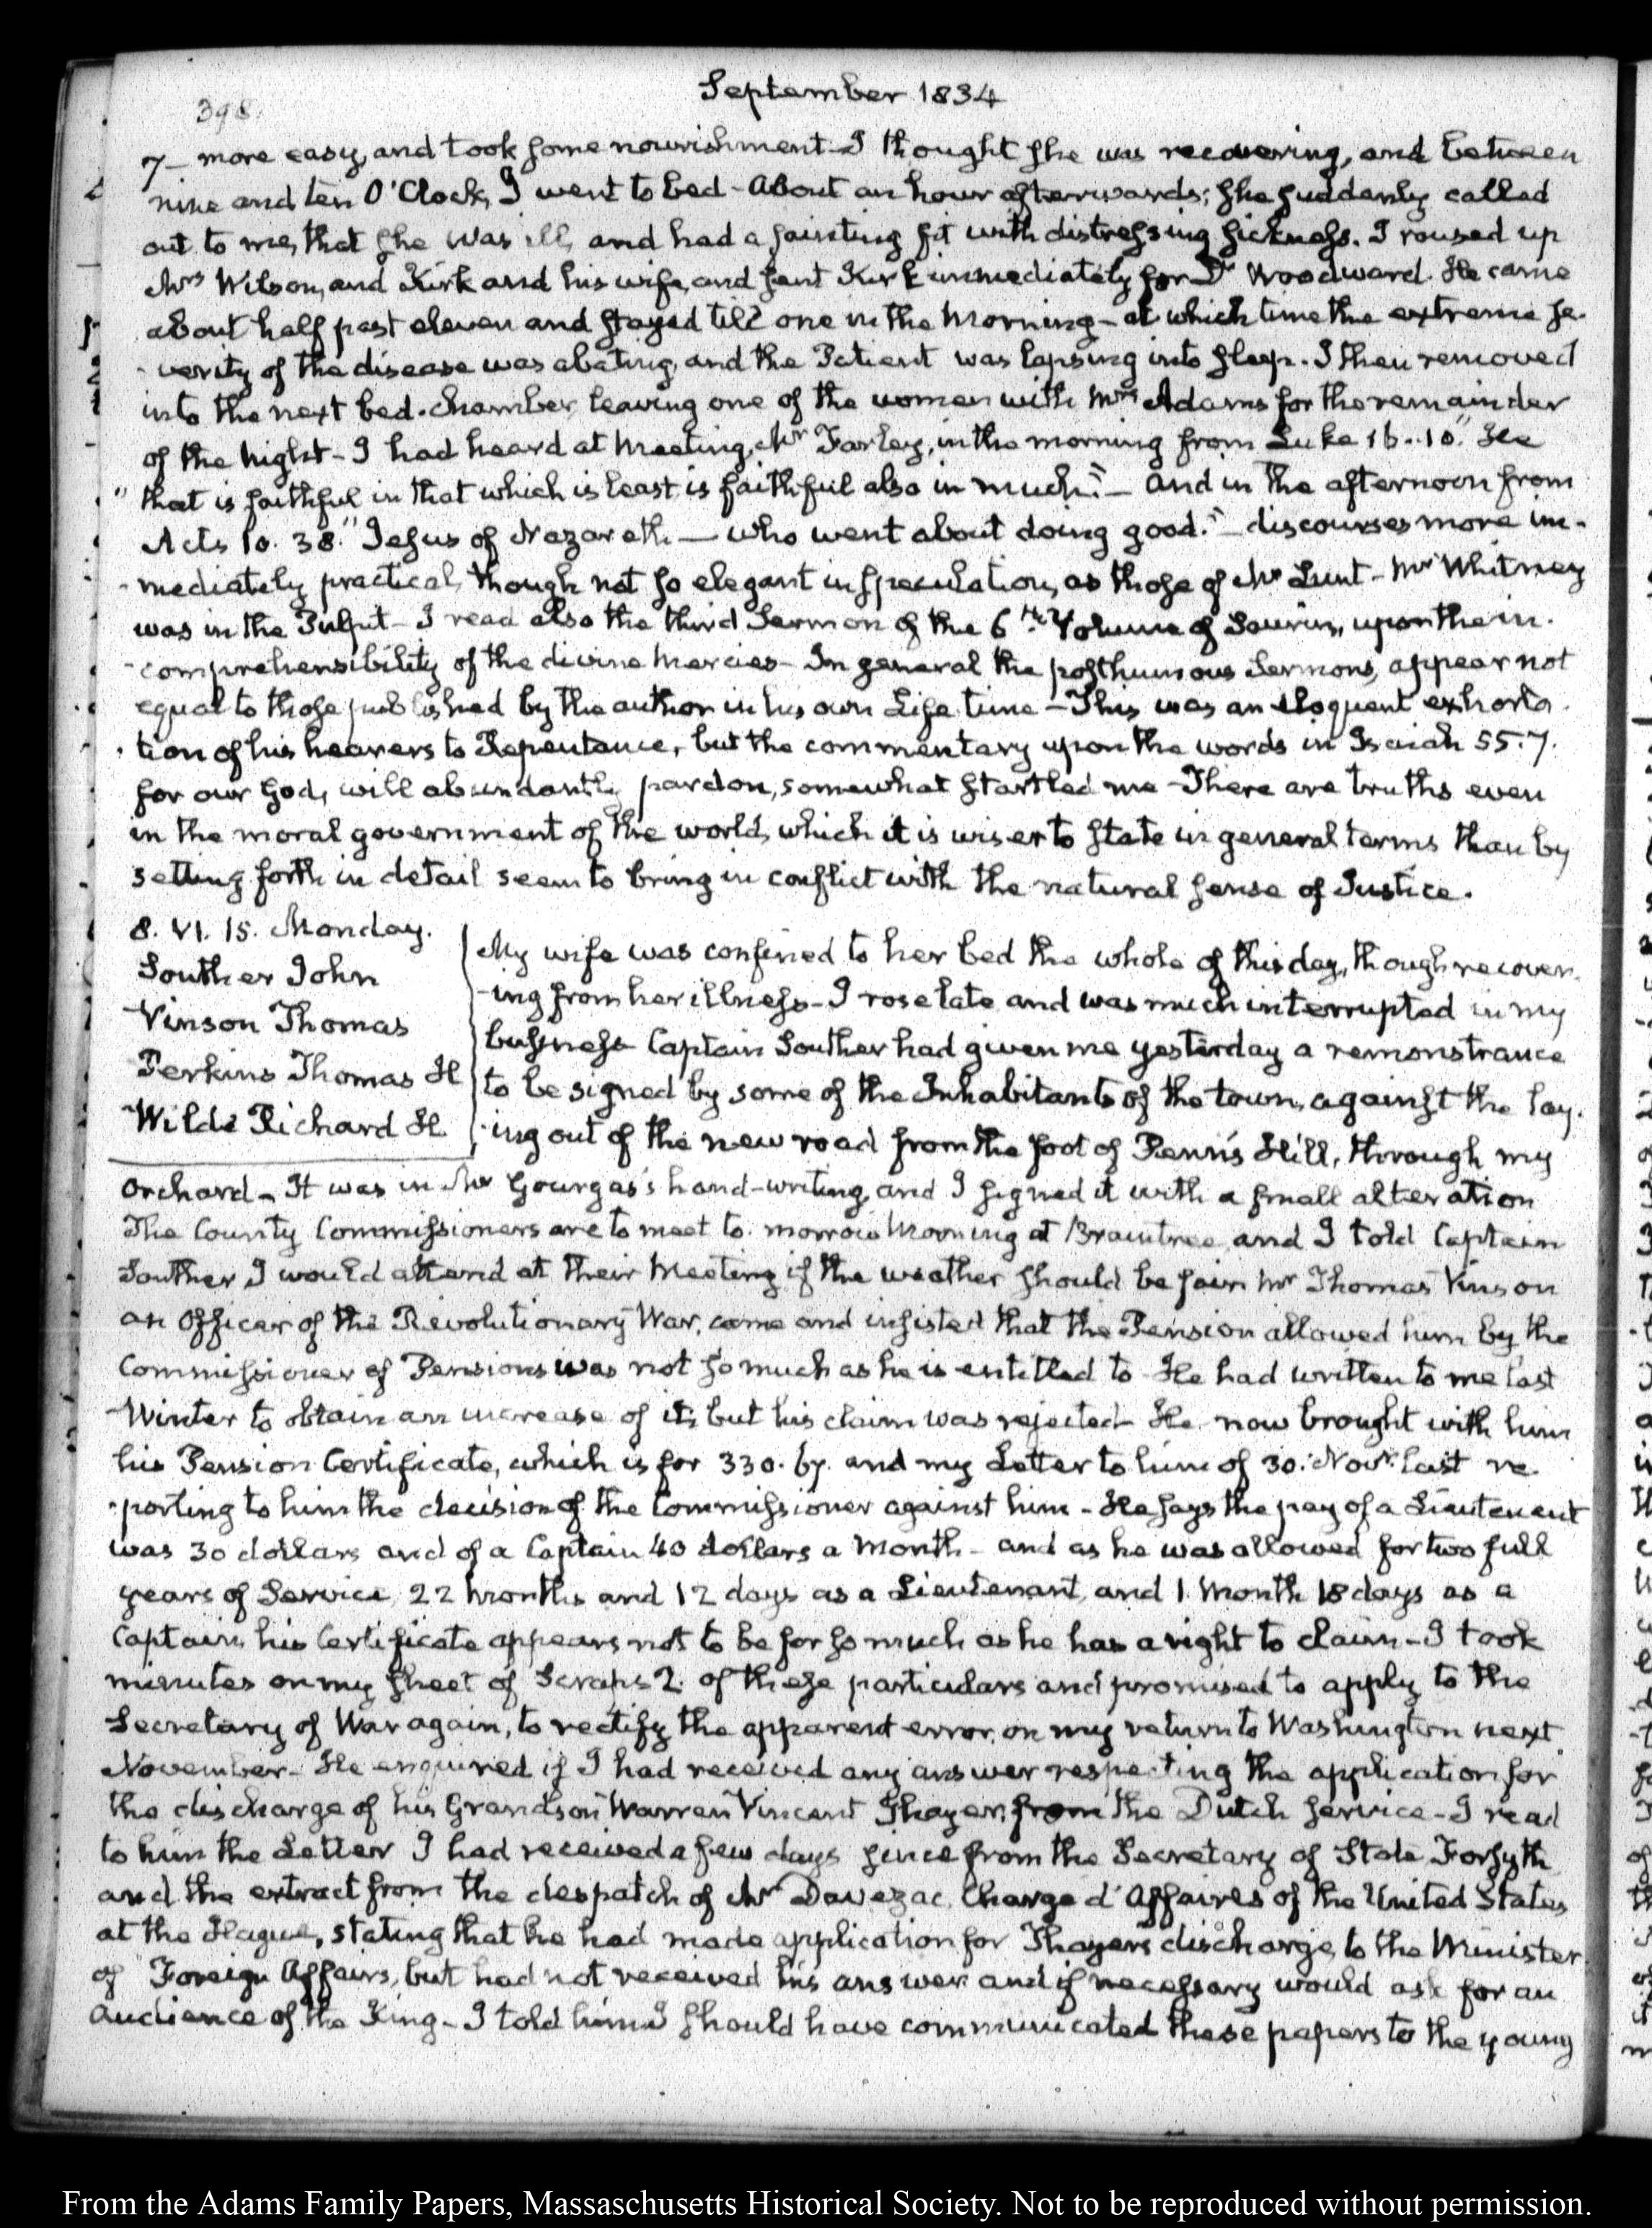 398.
September 1834
7— more easy, and took some nourishment— I thought she was recovering, and between
nine and ten O'Clock, I went to bed— About an hour afterwards; she suddenly called
out to me, that she was ill, and had a fainting fit with distressing sickness. I roused up
Mrs Wilson, and Kirk and his wife, and sent Kirk immediately for Dr Woodward. He came
about half past eleven and stayed till one in the morning— at which time the extreme se-
-verity of the disease was abating, and the Patient was lapsing into sleep. I then removed
into the next bed-chamber, leaving one of the women with Mrs Adams for the remainder
of the night— I had heard at Meeting, Mr Farley, in the morning from Luke 16..10. "He
"that is faithful in that which is least is faithful also in much."— and in the afternoon from
Acts 10. 38. "Jesus of Nazareth— who went about doing good."— discourses more im-
-mediately practical, though not so elegant in speculation, as those of Mr Lunt— Mr Whitney
was in the Pulpit— I read also the third Sermon of the 6th Volume of Saurin, upon the in-
-comprehensibility of the divine mercies— In general the posthumous Sermons, appear not
equal to those published by the author in his own Life time— This was an eloquent exhorta-
-tion of his hearers to Repentance, but the commentary upon the words in Isaiah 55.7.
for our God, will abundantly pardon, somewhat startled me— There are truths even
in the moral government of the world, which it is wiser to state in general terms than by
setting forth in detail seem to bring in conflict with the natural sense of Justice.
8. VI. 15. Monday.
Souther John
Vinson Thomas
Perkins Thomas H
Wilde Richard H
My wife was confined to her bed the whole of this day, though recover-
-ing from her illness— I rose late and was much interrupted in my
business Captain Souther had given me yesterday a remonstrance
to be signed by some of the Inhabitants of the town, against the lay-
-ing out of the new road from the foot of Penn's Hill, through my
Orchard— It was in Mr Gourgas's hand-writing, and I signed it with a small alteration
The County Commissioners are to meet to-morrow Morning at Braintree, and I told Captain
Souther I would attend at their Meeting if the weather should be fair Mr Thomas Vinson
an Officer of the Revolutionary War, came and insisted that the Pension allowed him by the
Commissioner of Pensions was not so much as he is entitled to He had written to me last
Winter to obtain an increase of it, but his claim was rejected— He now brought with him
his Pension Certificate, which is for 330.67. and my Letter to him of 30. Novr. last re-
-porting to him the decision of the Commissioner against him— He says the pay of a Lieutenant
was 30 dollars and of a Captain 40 dollars a month— and as he was allowed for two full
years of Service, 22 months and 12 days as a Lieutenant, and 1 Month 18 days as a
Captain, his Certificate appears not to be for so much as he has a right to claim— I took
minutes on my sheet of Scraps 2. of these particulars and promised to apply to the
Secretary of War again, to rectify the apparent error, on my return to Washington next
November— He enquired if I had received any answer respecting the application for
the discharge of his Grandson Warren Vincent Thayer, from the Dutch service— I read
to him the Letter I had received a few days since from the Secretary of State Forsyth
and the extract from the despatch of Mr Davezac, Charge d'Affaires of the United States
at the Hague, stating that he had made application for Thayer's discharge, to the Minister
of Foreign Affairs, but had not received his answer and if necessary would ask for an
audience of the King— I told him I should have communicated these papers to the young
From the Adams Family Papers, Massachusetts Historical Society. Not to be reproduced without permission.